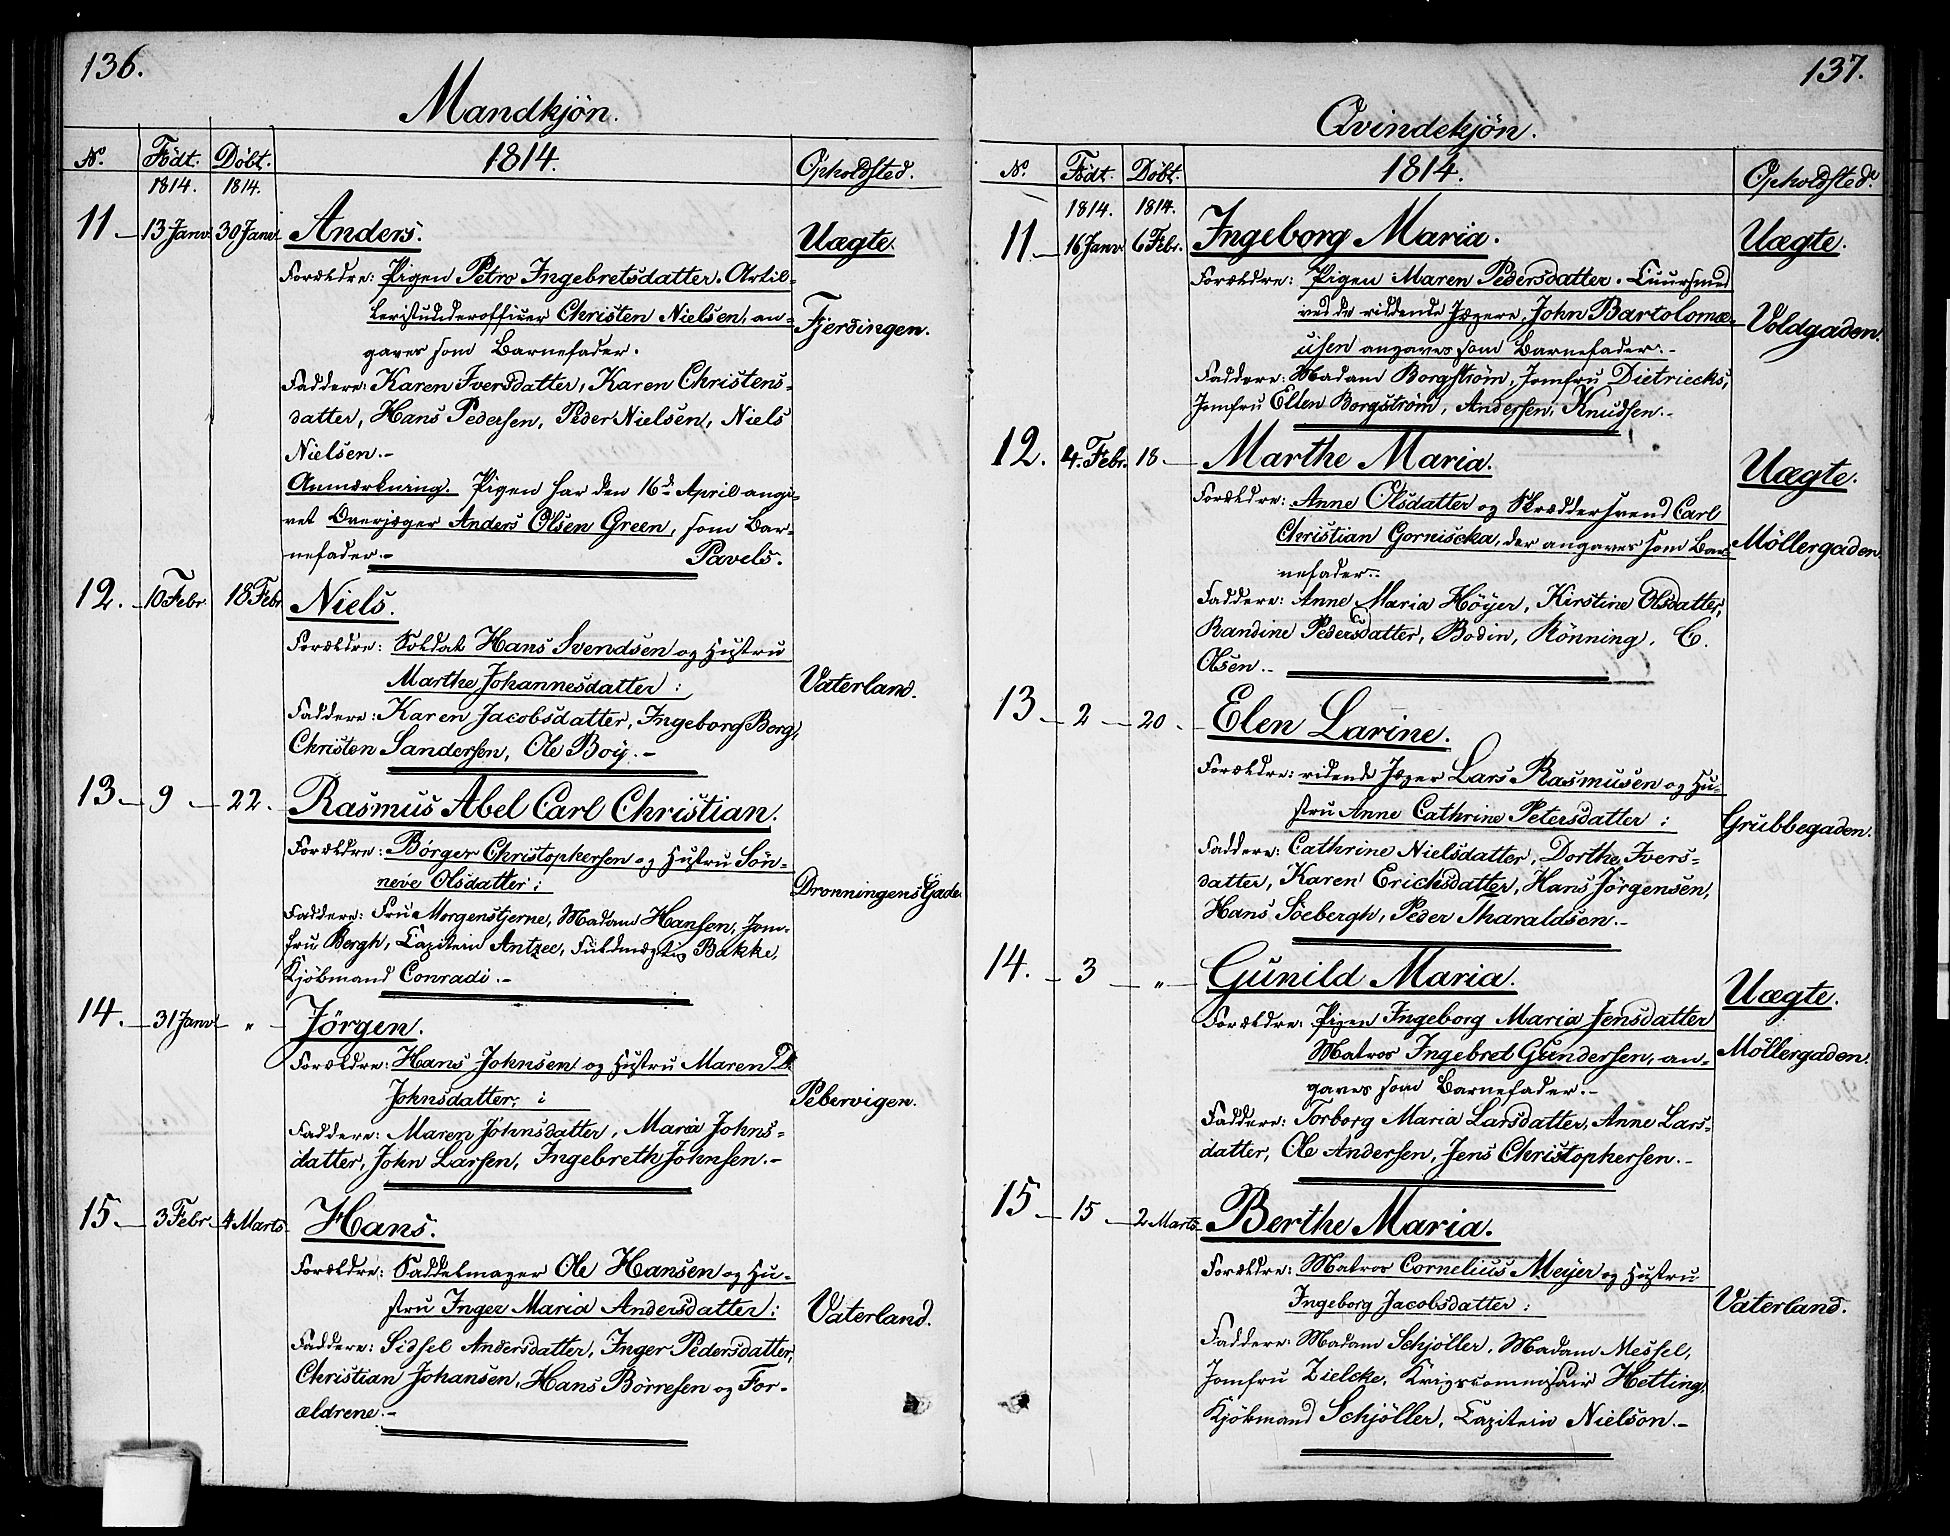 136.
Mandkjön.
No. Födt. Döbt. 1814. Opholdsted.
1814. 1814.
11 13 Janv. 30 Janv. Anders. Uægte.
Forældre: Pigen Petro Ingebretsdatter. Artil-
leriunderofficer Christen Nielsen, an- Fjerdingen.
gaves som Barnefader.
Faddere: Karen Iversdatter, Karen Christens-
datter, Hans Pedersen, Peder Nielsen, Niels
Nielsen.-
Anmærkning. Pigen har den 16d April angi-
vet Overjæger Anders Olsen Green, som Bar-
nefader.- Pavels.
12. 10 Febr. 18 Febr. Niels.
Forældre: Soldat Hans Svendsen og Hustru
Marthe Johannesdatter: Vaterland.
Faddere: Karen Jacobsdatter, Ingeborg Borg,
Christen Sandersen, Ole Boy.-
13 9 22. Rasmus Abel Carl Christian.
Forældre: Börger Christophersen og Hustru Sön-
neve Olsdatter: Dronningens Gade.
Faddere: Frue Morgenstjerne, Madam Hansen, Jom-
fru Bergh, Capitein Antzee, Fuldmægtig Bakke,
Kjöbmand Conradi.-
14. 31 Janv. " Jörgen.
Forældre: Hans Johnsen og Hustru Maren D.
Johnsdatter: Pebervigen.
Faddere: Maren Johnsdatter, Maria Johns-
datter, John Larsen, Ingebreth Johnsen.-
15. 3 Febr. 4 Marts Hans.
Forældre: Saddelmager Ole Hansen og Hu-
stru Inger Maria Andersdatter: Vaterland.
Faddere: Sidsel Andersdatter, Inger Pedersdatter,
Christian Johansen, Hans Börresen og For-
ældrene.-
137.
Qvindekjön.
No. Födt. Döbt. 1814. Opholdsted.
1814. 1814.
11 16 Janv. 6 Febr. Ingeborg Maria. Uægte.
Forældre: Pigen Maren Pedersdatter. Cuursmed
ved de riddende Jægere, John Bartolomæ- Voldgaden.
usen angaves som Barnefader.-
Faddere: Madam Borgström, Jomfru Dietriecks,
Jomfru Ellen Borgström, Andersen, Knudsen.-
12. 4. Febr. 18 Marthe Maria. Uægte.
Forældre: Anne Olsdatter og Skræddersvend Carl
Christian Gornischa, der angaves som Bar- Möllergaden
nefader.-
Faddere: Anne Maria Höyer, Kirstine Olsdatter,
Randine Pedersdatter, Bodin, Rönning, C.
Olsen.-
13 2 20. Elen Larine.
Forældre: ridende Jæger Lars Rasmusen og Hu-
stru Anne Cathrine Petersdatter: Grubbegaden.
Faddere: Cathrine Nielsdatter, Dorthe Ivers-
datter, Karen Ericksdatter, Hans Jörgensen,
Hans Söebergh, Peder Tharaldsen.-
14. 3 " Gunild Maria. Uægte.
Forældre: Pigen Ingeborg Maria Jensdatter
Matros Ingebret Gundersen, an- Möllergaden.
gaves som Barnefader.-
Faddere: Torborg Maria Larsdatter, Anne Lars-
datter, Ole Andersen, Jens Christophersen.-
15 15 2 Marts Berthe Maria.
Forældre: Matros Cornelius Meyer og Hustru
Ingeborg Jacobsdatter: Vaterland.
Faddere: Madam Schjöller, Madam Messel,
Jomfru Zielcke, Krigscommisair Hetting,
Kjöbmand Schjöller, Capitein Nielson.-